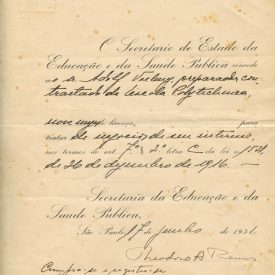 O Secretario de Estado da
Educação e da Saude Publica concede
ao sr. Adolf preparador con-
tractado da Escola Polytechnica,
licença, para
tratar de negocios de seu interesse,
nos termos do art. 7º, 2º letra C da lei nº 1521
de 26 de dezembro de 1916.—
Secretaria da Educação e da
Saude Publica,
São Paulo, de junho de 1931.
Theodoro A Ramos
Cumpra-se e registre-se